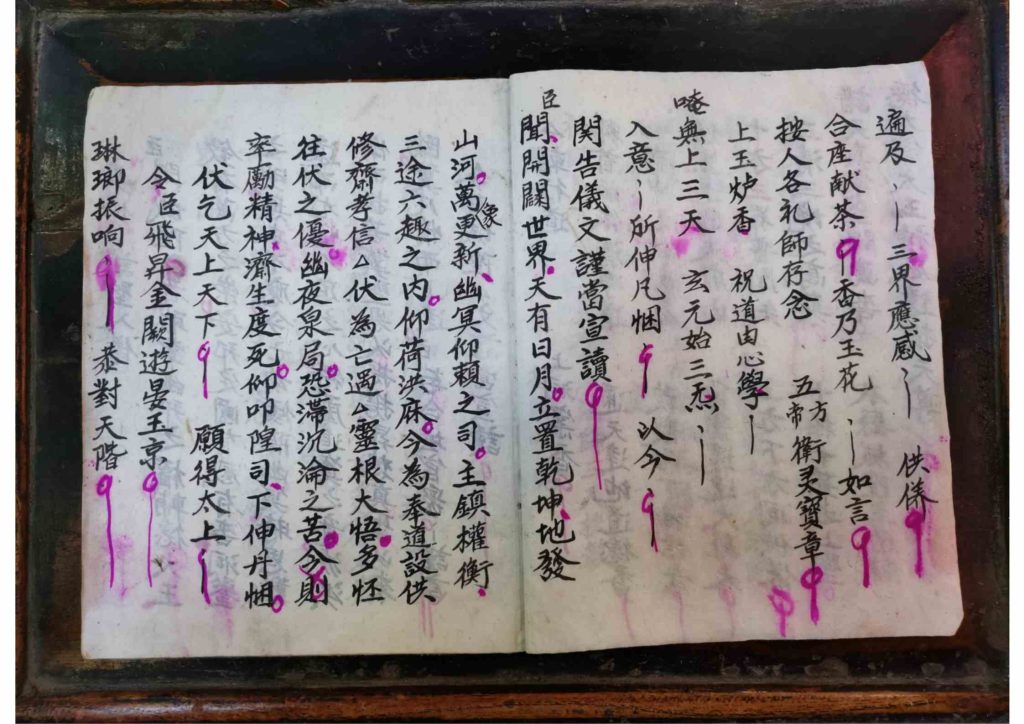 遍及 三界應感 供養
合座献茶 香乃玉花 如言
按人各礼師存念 五方五帝衛灵寶章
上玉炉香 祝道由心學
唵無上三天 玄元始三炁
入意 所伸凡悃 以今
関告儀文謹當宣讀
臣聞開闢世界天有日月立置乾坤地發
山河萬象更新幽冥仰賴之司主鎮權衡
三途六趣之内仰荷洪庥今為奉道設供
修齋孝信△伏為亡過△靈根大悟多怌
往伏之優幽夜泉局恐滞沉淪之苦今則
率勵精神濟生度死仰叩隍司下伸丹悃
伏乞天上天下 願得太上
令臣飛昇金闕遊晏玉京
琳瑯振响 恭對天階